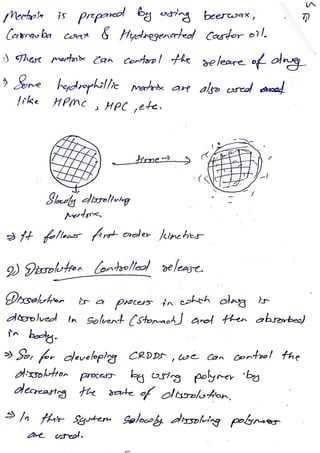 Matrix is prepared by using beeswax,
Carnauba wax & Hydrogenated Castor oil.
→ These matrix can control the release of drug
→ Some hydrophillic matrix are also used
like HPMC, HPC, etc.
time →
Slowly dissolving
Matrix.
⇒ It follows first order kinetics
2) Dissolution Controlled release.
Dissolution is a process in which drug is
dissolved in solvent (Stomach) and then absorbed
in body.
⇒ So, for developing CRDDS, we can control the
dissolution process by using polymer by
decreasing the rate of dissolution.
⇒ In this system slowly dissolving polymers
are used.